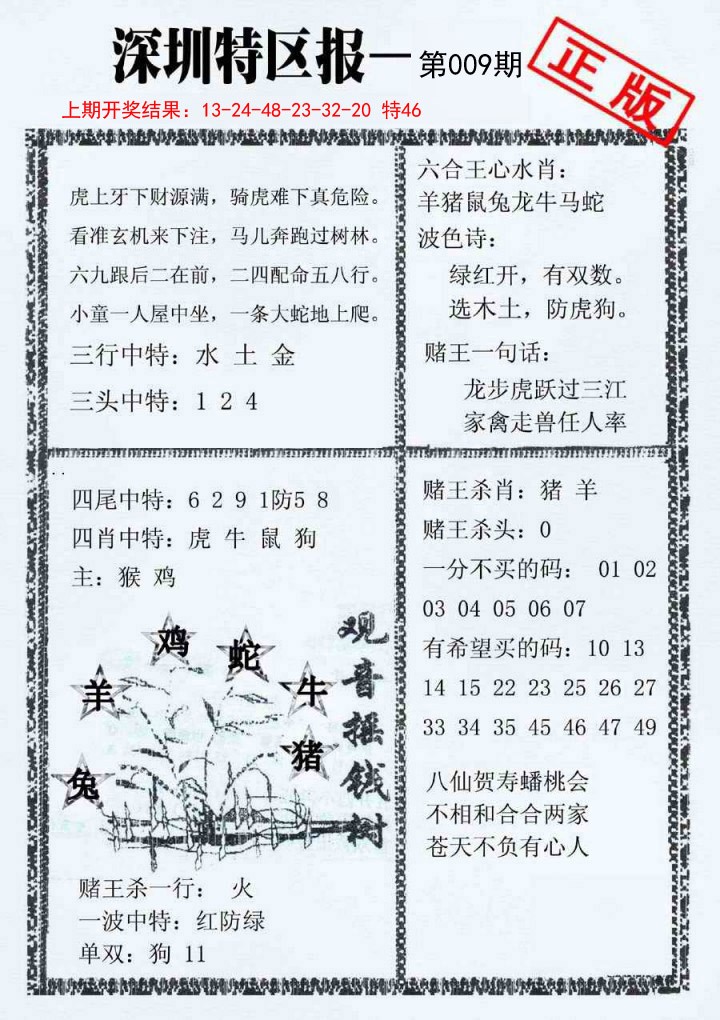 深圳特区报一第009期
正版
上期开奖结果：13-24-48-23-32-20 特46
虎上牙下财源满，骑虎难下真危险。
看准玄机来下注，马儿奔跑过树林。
六九跟后二在前，二四配命五八行。
小童一人屋中坐，一条大蛇地上爬。
三行中特：水 土 金
三头中特：1 2 4
六合王心水肖：
羊猪鼠兔龙牛马蛇
波色诗：
绿红开，有双数。
选木土，防虎狗。
赌王一句话：
龙步虎跃过三江
家禽走兽任人率
四尾中特：6 2 9 1防5 8
四肖中特：虎 牛 鼠 狗
主：猴 鸡
鸡
蛇
羊
牛
猪
兔
观音摇钱树
赌王杀一行： 火
一波中特：红防绿
单双：狗 11
赌王杀肖：猪 羊
赌王杀头：0
一分不买的码： 01 02
03 04 05 06 07
有希望买的码：10 13
14 15 22 23 25 26 27
33 34 35 45 46 47 49
八仙贺寿蟠桃会
不相和合合两家
苍天不负有心人